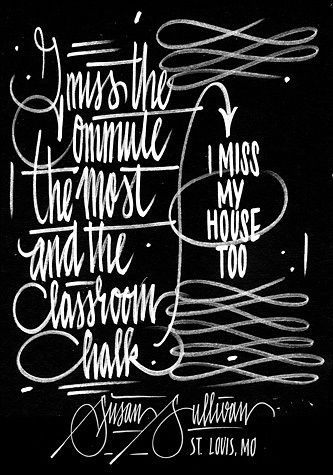 I miss the
Commute
the most
and the
Classroom
Chalk.
I MISS
MY
HOUSE
TOO
Susan Sullivan
ST. LOUIS, MO